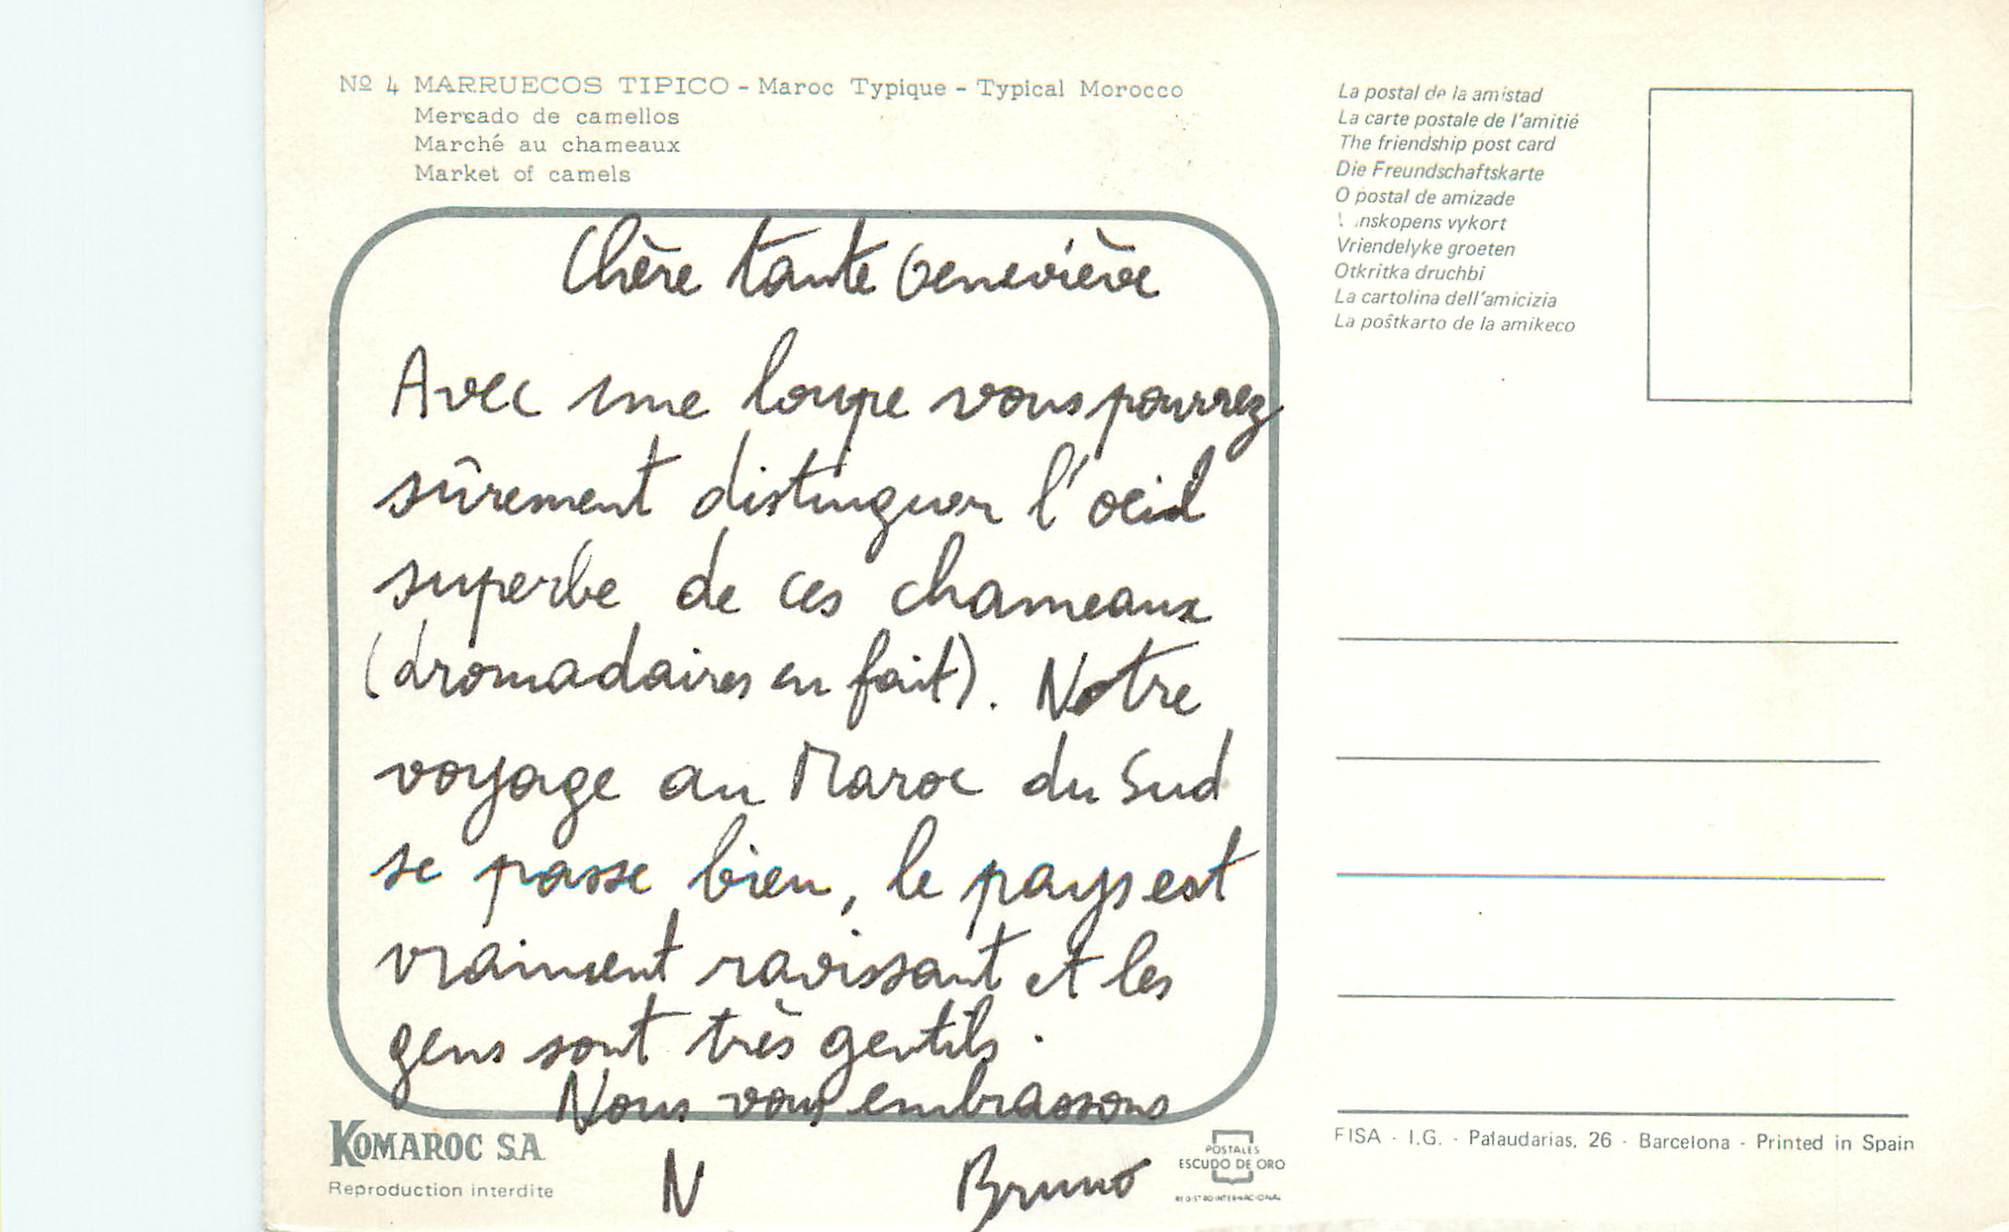 Nº 4 MARRUECOS TIPICO - Maroc Typique - Typical Morocco
Mercado de camellos
Marché au chameaux
Market of camels
Chère tante Geneviève
Avec une loupe vous pourrez
sûrement distinguer l'oeil
superbe de ces chameaux
(dromadaires en fait). Notre
voyage au Maroc du Sud
se passe bien, le pays est
vraiment ravissant et les
gens sont très gentils.
Nous vous embrassons
N Bruno
KOMAROC S.A.
Reproduction interdite
POSTALES
ESCUDO DE ORO
REGISTRO INTERNACIONAL
La postal de la amistad
La carte postale de l'amitié
The friendship post card
Die Freundschaftskarte
O postal de amizade
nskopens vykort
Vriendelyke groeten
Otkritka druchbi
La cartolina dell'amicizia
La poŝtkarto de la amikeco
FISA - I.G. - Palaudarias, 26 - Barcelona - Printed in Spain